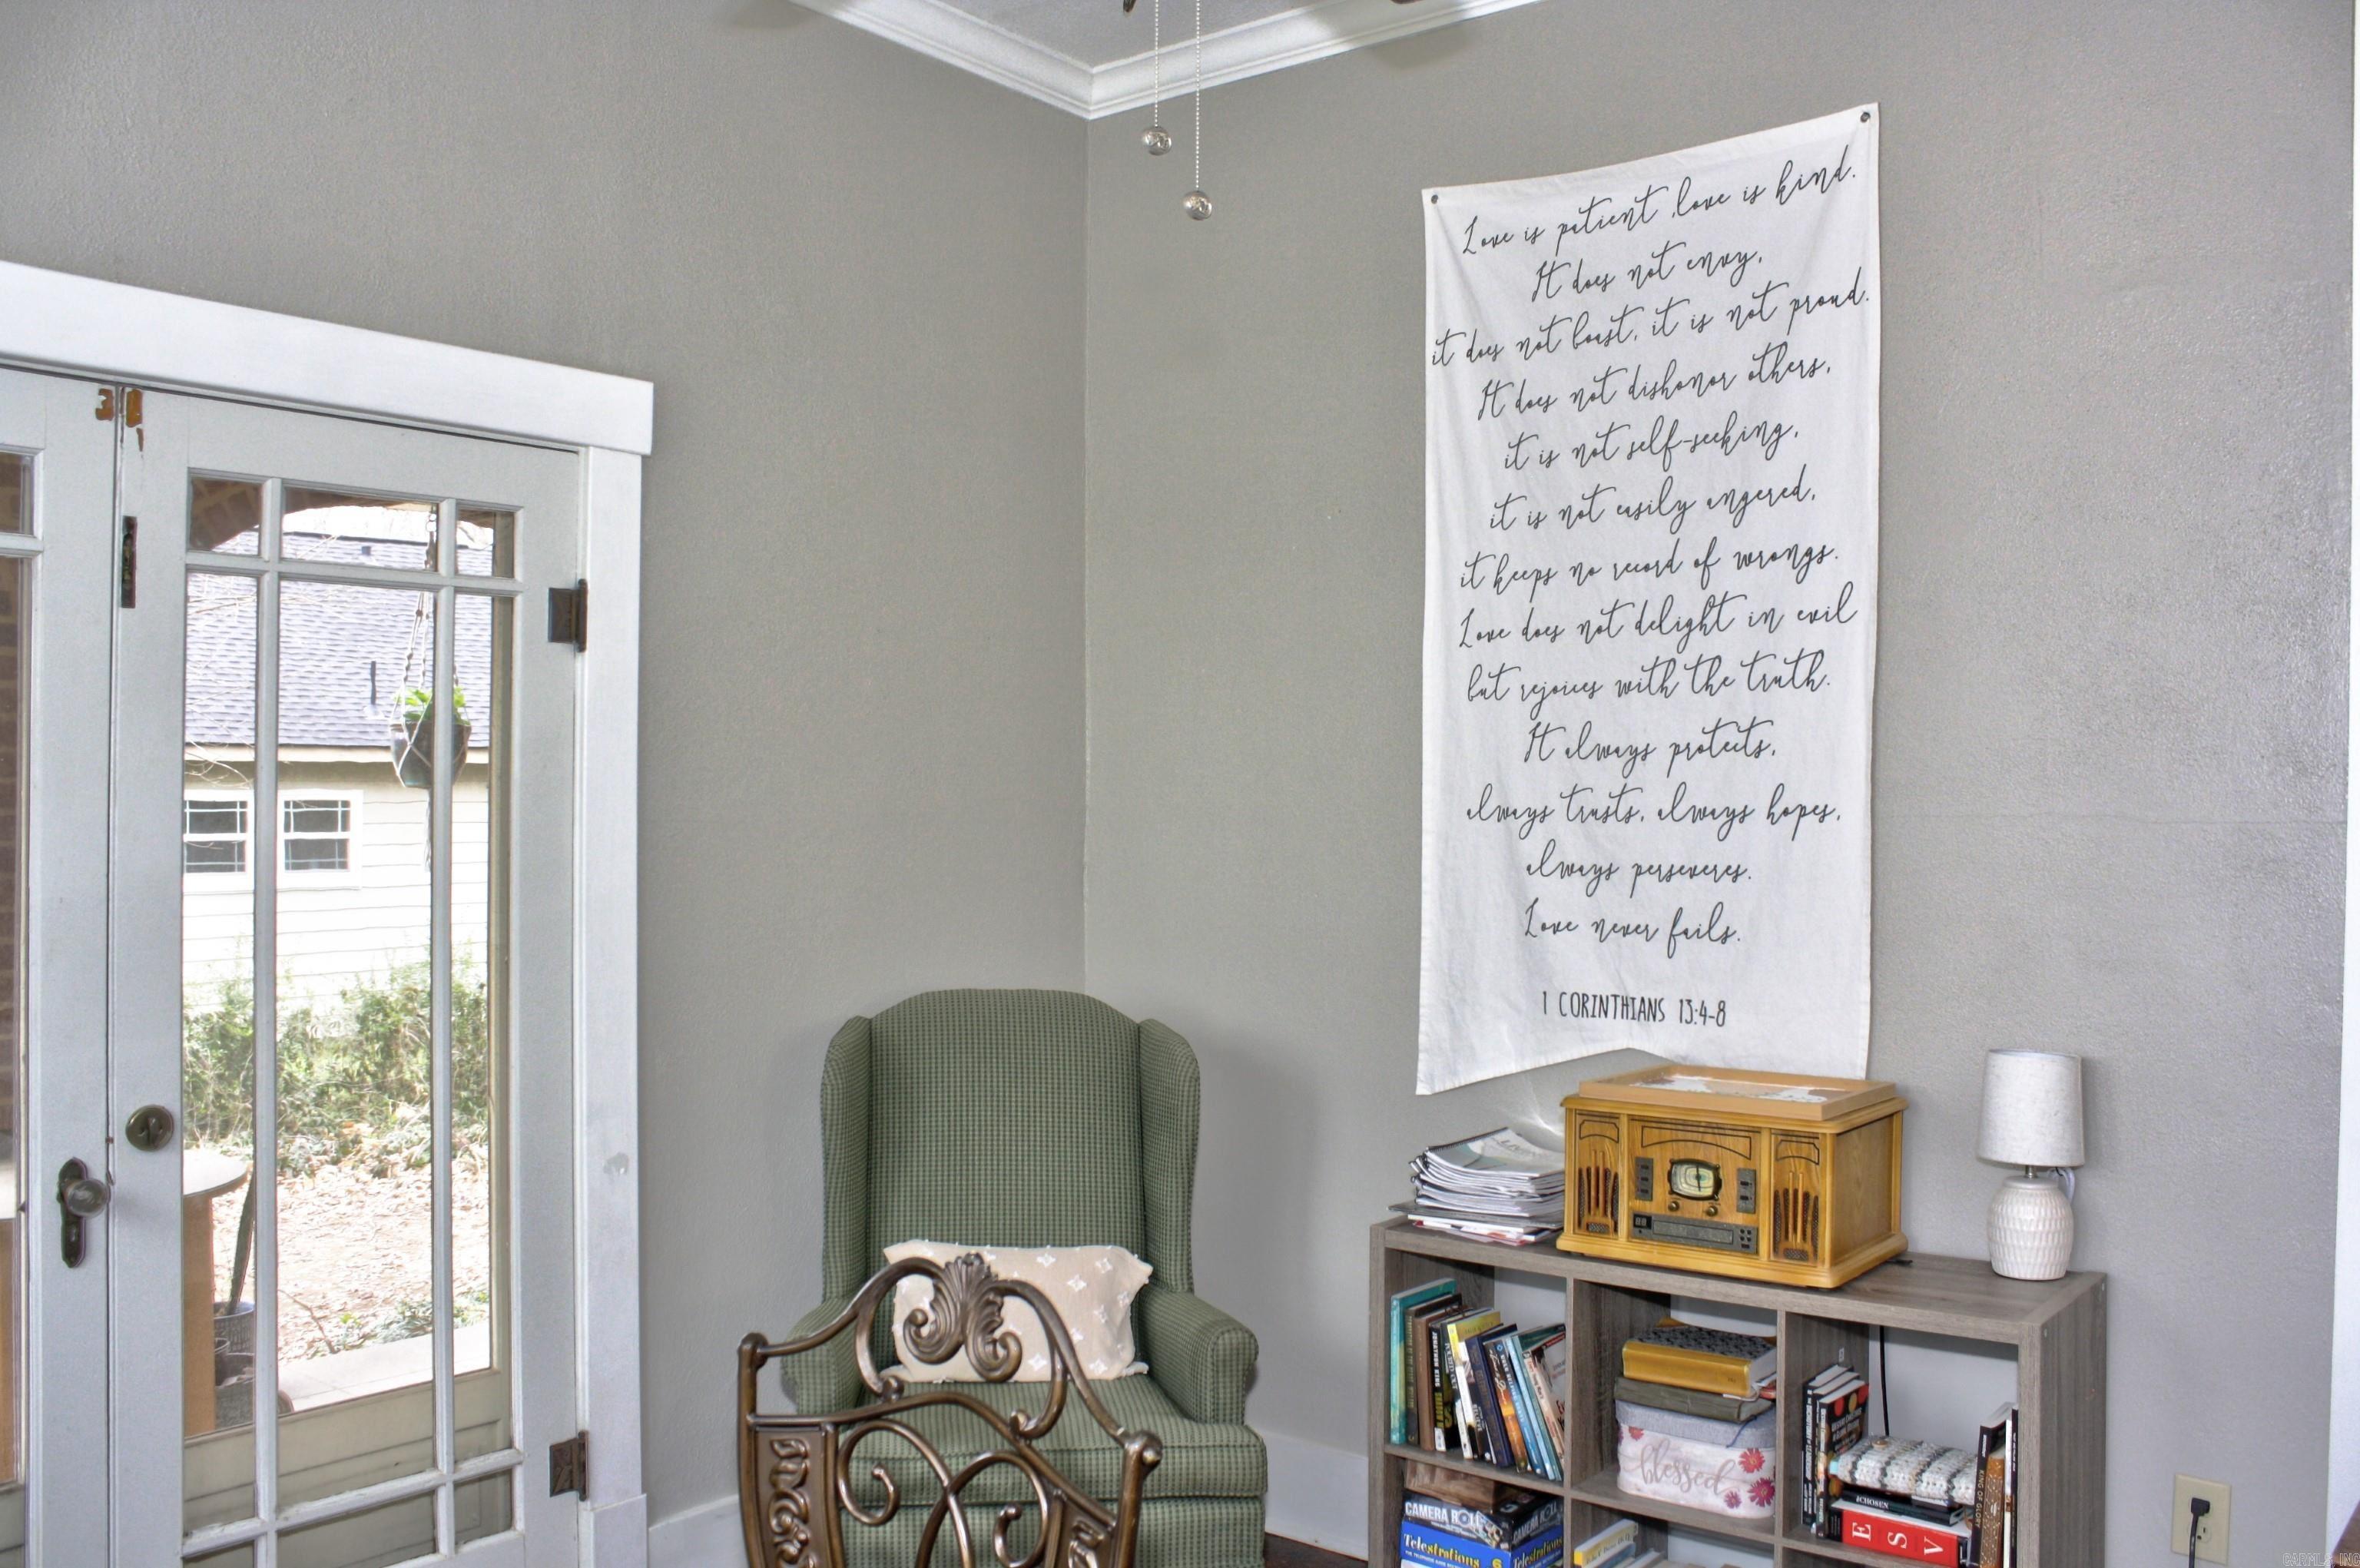 Love is patient, love is kind.
It does not envy,
it does not boast, it is not proud.
It does not dishonor others,
it is not self-seeking,
it is not easily angered,
it keeps no record of wrongs.
Love does not delight in evil
but rejoices with the truth.
It always protects,
always trusts, always hopes,
always perseveres.
Love never fails.
1 CORINTHIANS 13:4-8
blessed
CHOSEN
ESV
KING OF GLORY
CAMERA ROLL
Telestrations 6
Telestrations
CARMLS, INC